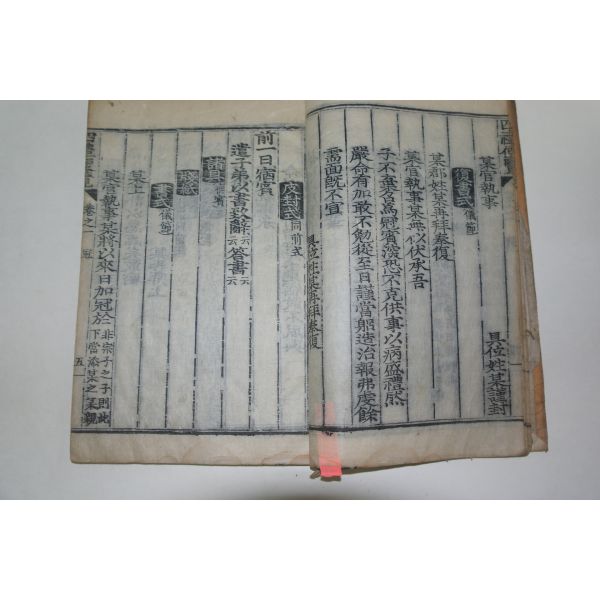 某官執事
具位姓某謹封
復書式 儀節
某郡姓某再拜奉復
某官執事某無以伏承吾
子不棄召爲冠賓深恐不克供事以病盛禮然
嚴命有加敢不勉從至日謹當躬造治報弗虔餘
需面既不宣
具位姓某再拜奉復
皮封式 同前式
前一日宿賓
遣子弟以書致辭云云答書云云
諸具
書式 儀節
某上
某官執事某將以來日加冠於 非宗子之子則此下當添某之某親
卷之一 冠 五